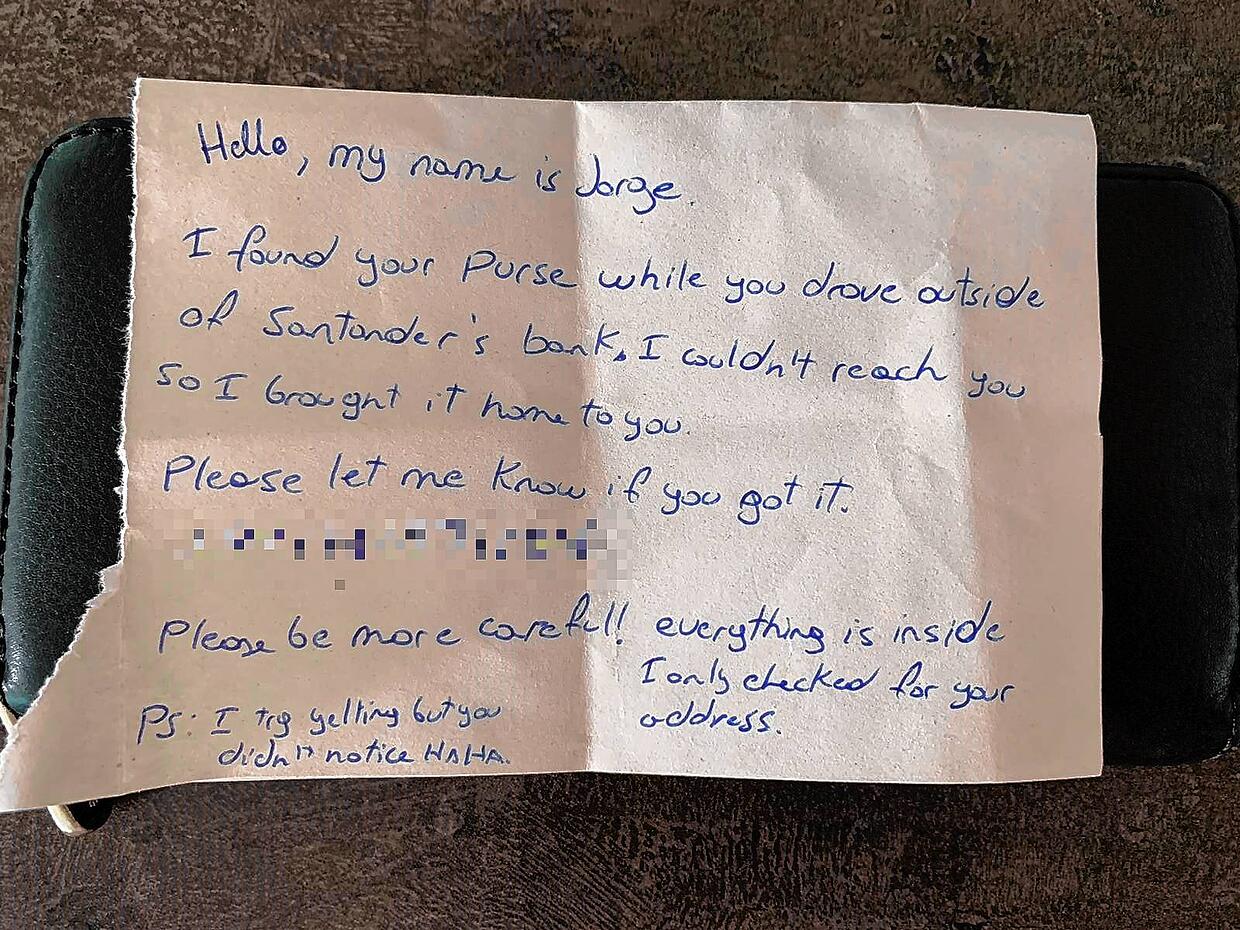 Hello, my name is Jorge.
I found your Purse while you drove outside
of Santander's bank, I couldn't reach you
so I brought it home to you.
Please let me know if you got it.
Please be more careful! everything is inside
I only checked for your
address.
Ps: I try yelling but you
didn't notice HAHA.